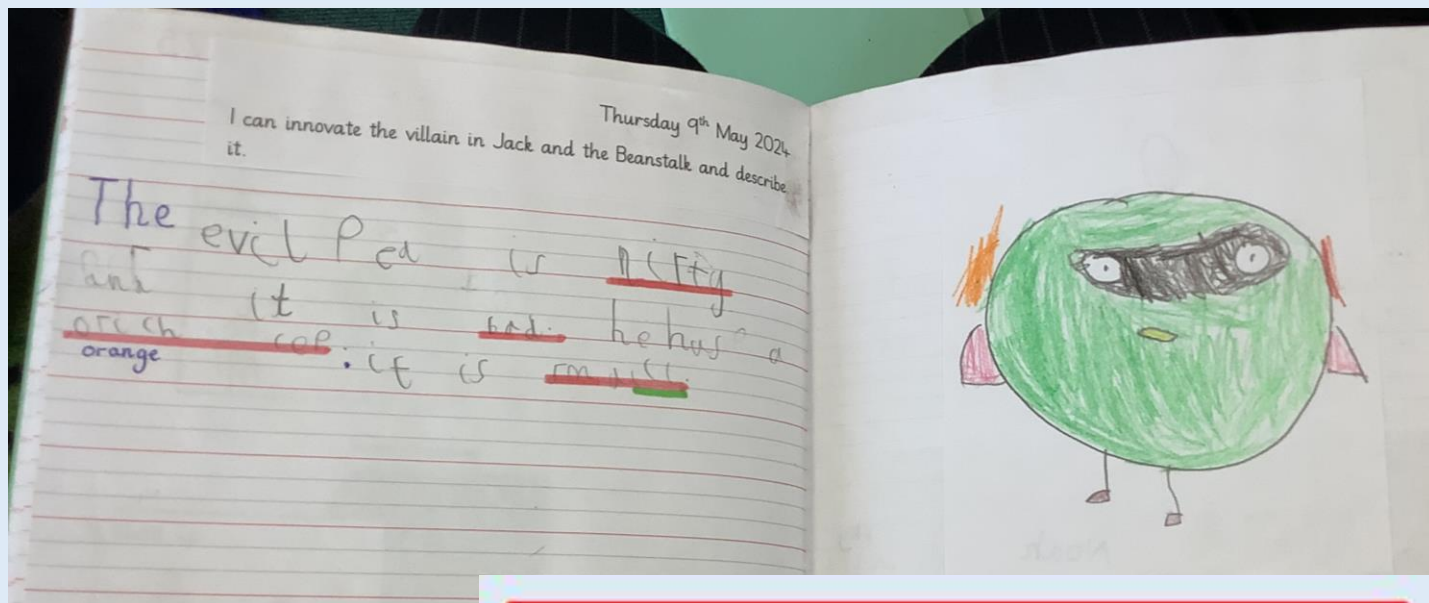 Thursday 9th May 2024
I can innovate the villain in Jack and the Beanstalk and describe
it.
The evil Ped is nirty
and it is bad. he has a
orich cap. it is
orange